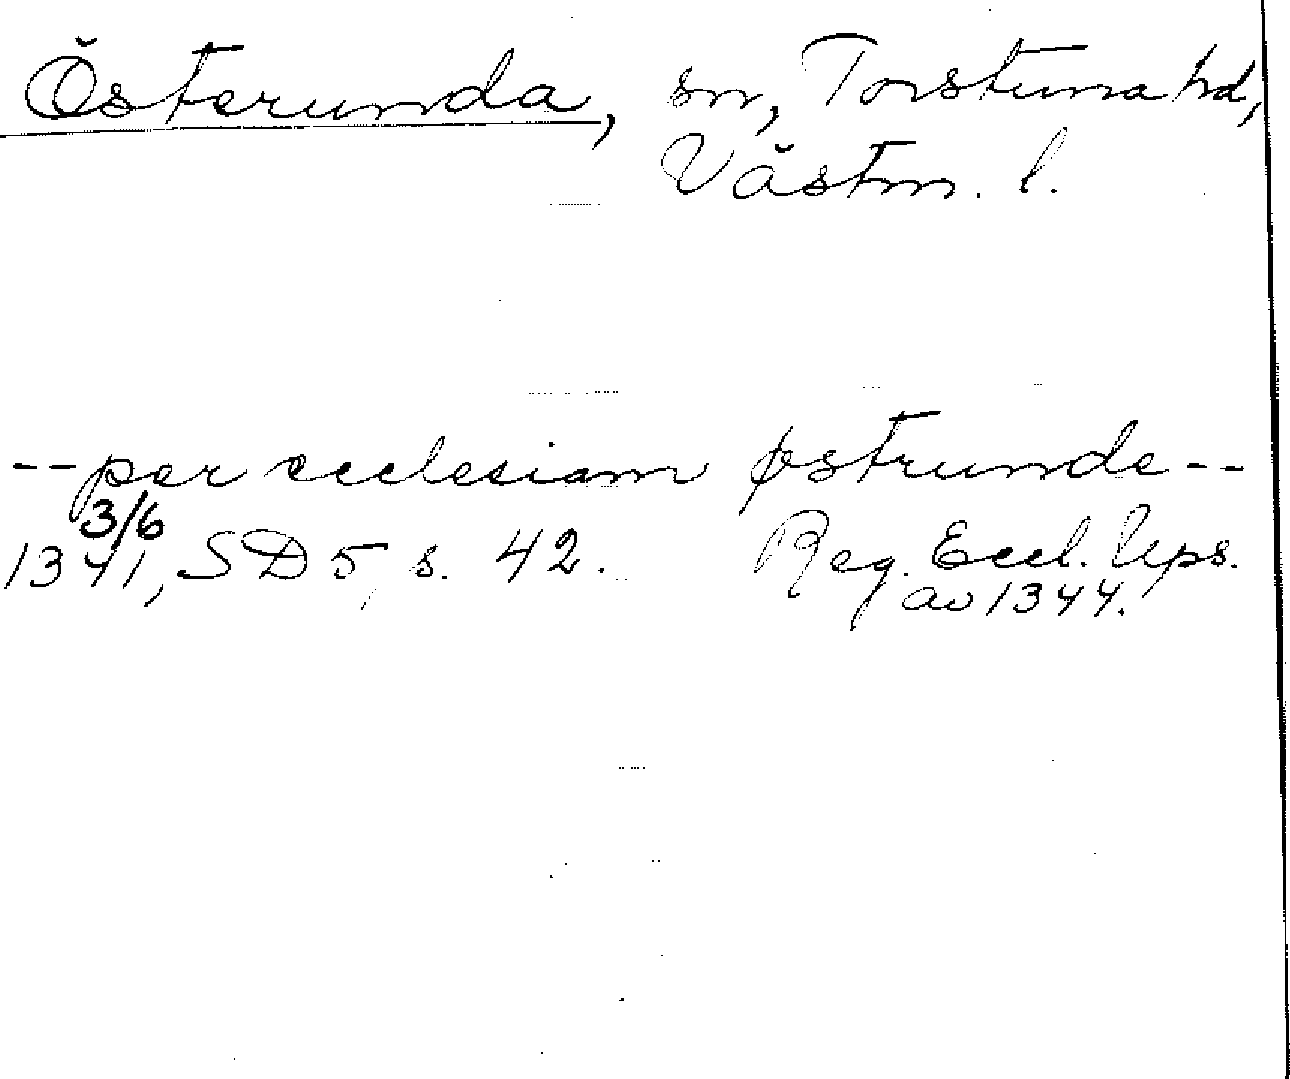 Österunda, sn, Torstuna hd,
Västm. l.
-- per ecclesiam østrunde --
3/6
1341, SD 5, s. 42. Reg. Eccl. Ups.
av 1344.